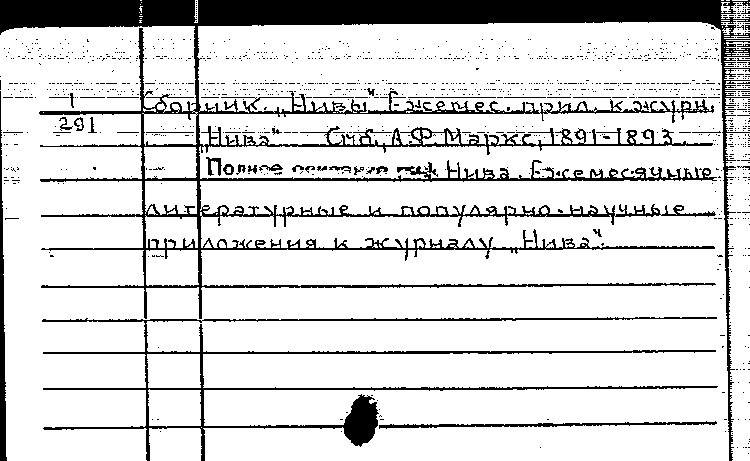 1
291
Сборник „Нивы“ Ежемес. прил. к журн.
„Нива“ Спб., А.Ф. Маркс, 1891-1893.
Полное описание Нива. Ежемесячные
литературные и популярно-научные
приложения к журналу „Нива“.